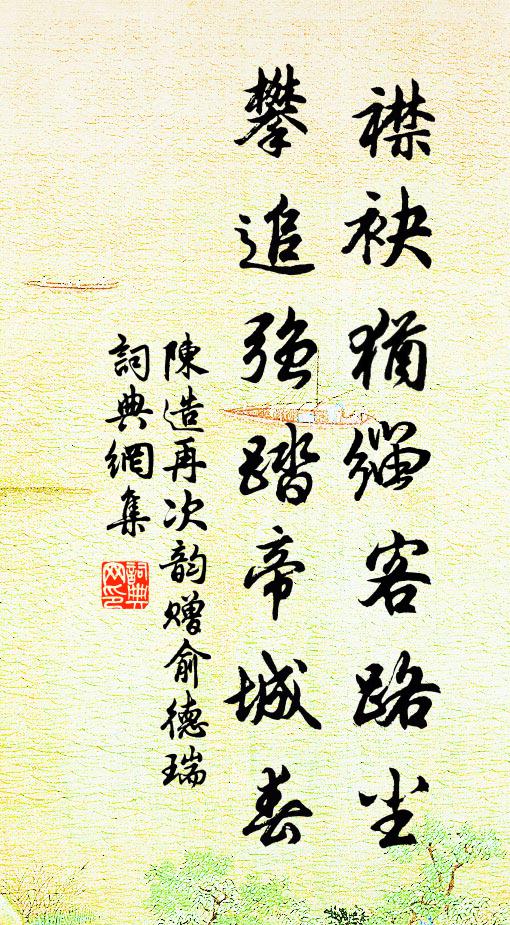 襟袂猶緇客路尘
攀追強踏帝城春
陳造再次韵贈俞德瑞
詞典網集
詞典
网印